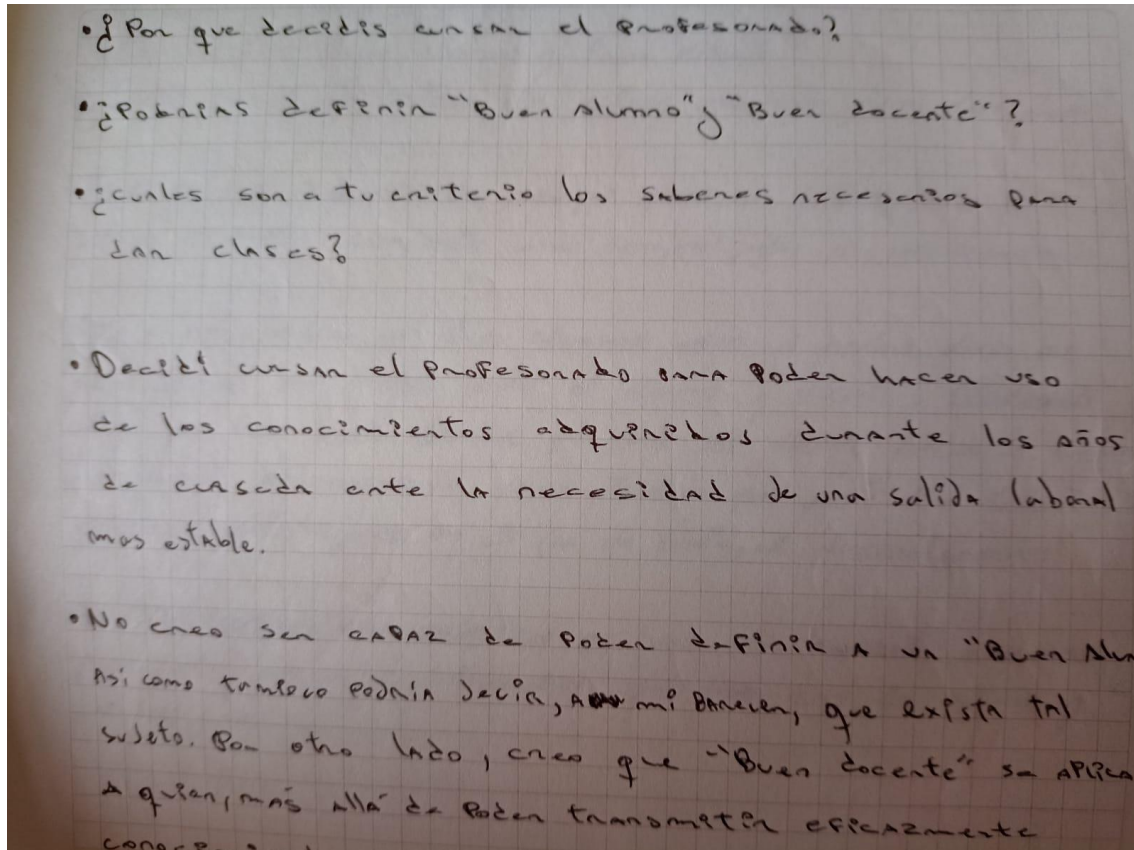 • ¿Por que decidis cursar el profesorado?
• ¿Podrias definir "Buen Alumno" y "Buen docente"?
• ¿cuales son a tu criterio los saberes necesarios para
dar clases?
• Decidi cursar el profesorado para poder hacer uso
de los conocimientos adquiridos durante los años
de cursada ante la necesidad de una salida laboral
mas estable.
• No creo ser capaz de poder definir a un "Buen Alum
Asi como tampoco podria decir, a mi parecer, que exista tal
sujeto. Por otro lado, creo que "Buen docente" se aplica
A quien, más allá de poder transmitir eficazmente